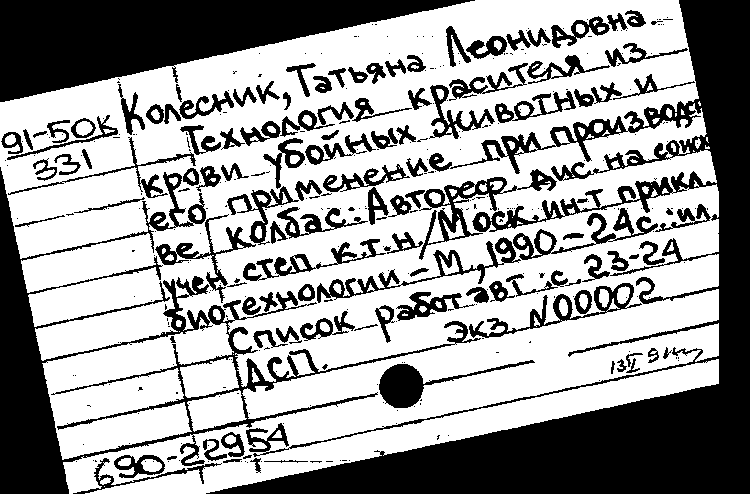 91-50К
331
Колесник, Татьяна Леонидовна.
Технология красителя из
крови убойных животных и
его применение при производст
ве колбас: Автореф. дис. на соиск
учен. степ. к.т.н. / Моск. ин-т прикл.
биотехнологии. - М., 1990. - 24 с.: ил.
Список работ авт.: с. 23-24
ДСП. Экз. N00002
690-22954